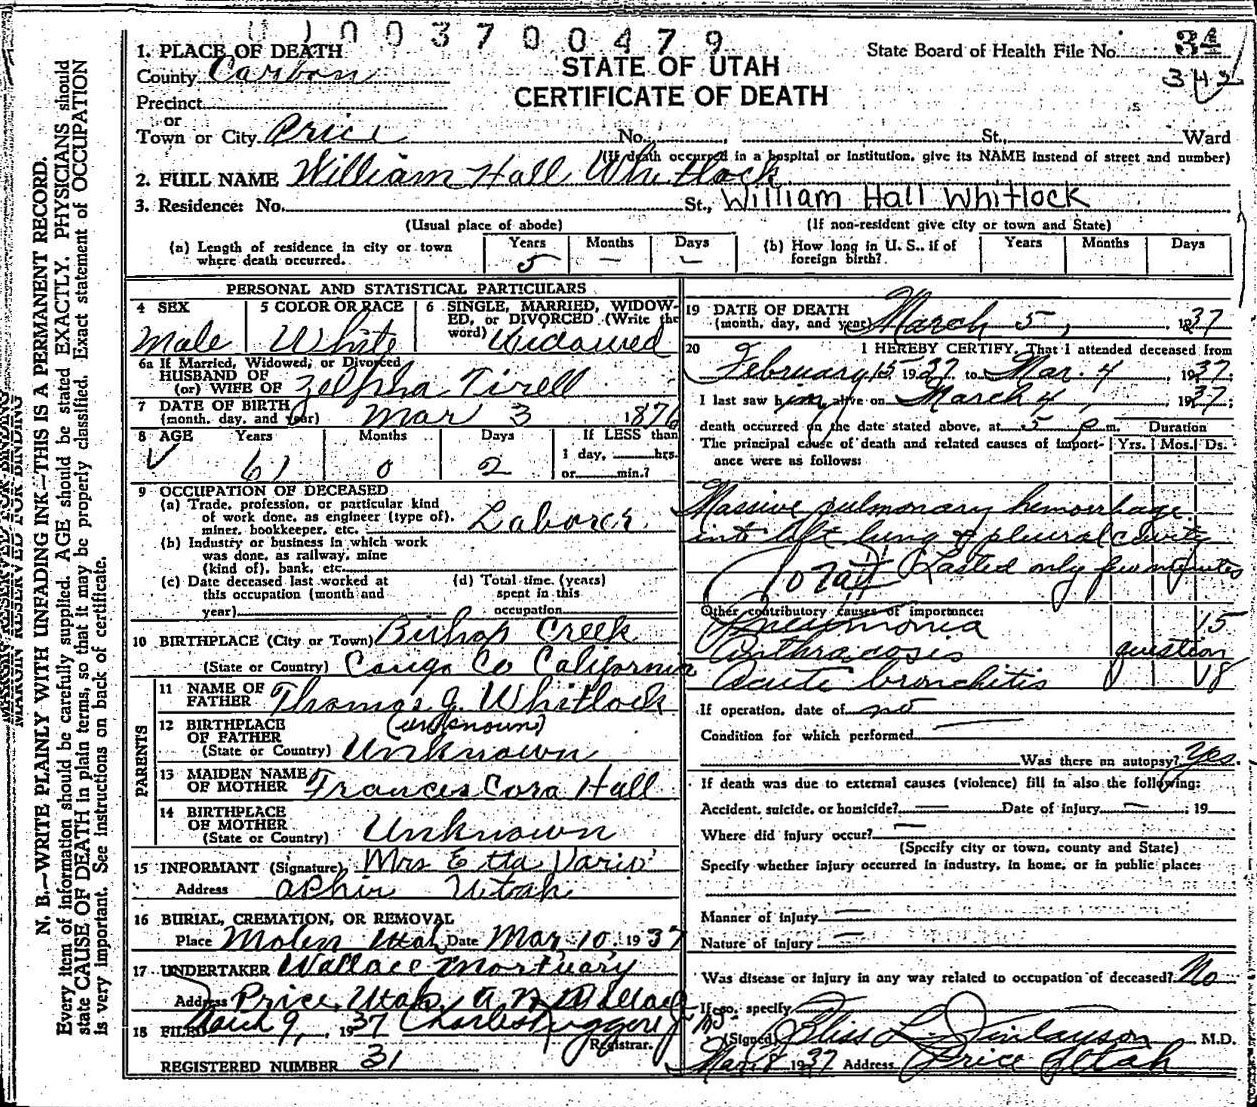 0 1 0 0 3 7 0 0 4 7 9
1. PLACE OF DEATH
County Carbon
Precinct
or
Town or City Price No. St. Ward
STATE OF UTAH
CERTIFICATE OF DEATH
State Board of Health File No. 34
342
(If death occurred in a hospital or institution, give its NAME instead of street and number)
2. FULL NAME William Hall Whitlock
3. Residence: No. St., William Hall Whitlock
(Usual place of abode) (If non-resident give city or town and State)
(a) Length of residence in city or town where death occurred. Years 5 Months — Days —
(b) How long in U. S., if of foreign birth? Years Months Days
PERSONAL AND STATISTICAL PARTICULARS
4 SEX Male
5 COLOR OR RACE White
6 SINGLE, MARRIED, WIDOWED, or DIVORCED (Write the word) Widowed
6a If Married, Widowed, or Divorced
HUSBAND OF
(or) WIFE OF Zelpha Tirell
7 DATE OF BIRTH
(month, day, and year) Mar 3 1876
8 AGE Years 61 Months 0 Days 2 If LESS than 1 day, hrs. or min.?
9 OCCUPATION OF DECEASED
(a) Trade, profession, or particular kind of work done, as engineer (type of), miner, bookkeeper, etc. Laborer
(b) Industry or business in which work was done, as railway, mine (kind of), bank, etc.
(c) Date deceased last worked at this occupation (month and year)
(d) Total time (years) spent in this occupation
10 BIRTHPLACE (City or Town) Bishop Creek
(State or Country) Co California
PARENTS
11 NAME OF FATHER Thomas J. Whitlock
12 BIRTHPLACE OF FATHER (unknown)
(State or Country) Unknown
13 MAIDEN NAME OF MOTHER Frances Cora Hall
14 BIRTHPLACE OF MOTHER
(State or Country) Unknown
15 INFORMANT (Signature) Mrs Etta
Address Utah
16 BURIAL, CREMATION, OR REMOVAL
Place Molen Utah Date Mar, 10, 1937
17 UNDERTAKER Wallace Mortuary
Address Price, Utah, Wallace
18 FILED March 9, 1937 Charles Ruggeri Jr MD.
Registrar.
REGISTERED NUMBER 31
19 DATE OF DEATH
(month, day, and year) March 5, 1937
20 I HEREBY CERTIFY, That I attended deceased from
February 15 1937 to Mar. 4, 1937
I last saw him alive on March 4, 1937
death occurred on the date stated above, at 5 p. m. Duration
The principal cause of death and related causes of importance were as follows: Yrs. Mos. Ds.
Massive pulmonary hemorrhage
into left lung & pleural cavity
Lasted only few minutes
Other contributory causes of importance:
Pneumonia 15
Anthracosis question
Acute bronchitis 18
If operation, date of no
Condition for which performed
Was there an autopsy? Yes.
If death was due to external causes (violence) fill in also the following:
Accident, suicide, or homicide? — Date of injury — 19
Where did injury occur? —
(Specify city or town, county and State)
Specify whether injury occurred in industry, in home, or in public place:
Manner of injury —
Nature of injury —
Was disease or injury in any way related to occupation of deceased? No
If so, specify
(Signed) Bliss L. Finlayson M.D.
Mar 8 1937 Address Price Utah
MARGIN RESERVED FOR BINDING
N. B.—WRITE PLAINLY WITH UNFADING INK—THIS IS A PERMANENT RECORD.
Every item of information should be carefully supplied. AGE should be stated EXACTLY. PHYSICIANS should
state CAUSE OF DEATH in plain terms, so that it may be properly classified. Exact statement of OCCUPATION
is very important. See instructions on back of certificate.